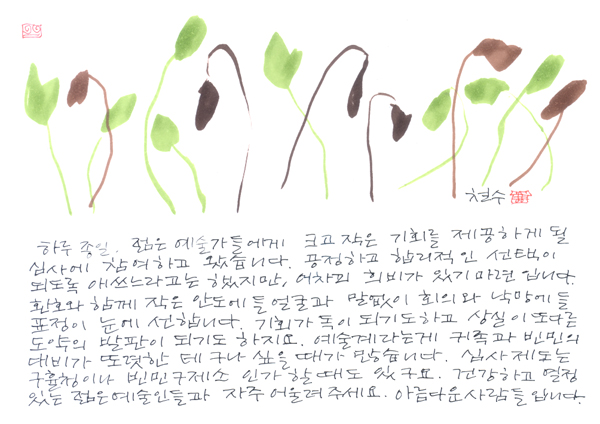 철수
하루 종일. 젊은 예술가들에게 크고 작은 기회를 제공하게 될
심사에 참여하고 왔습니다. 공정하고 합리적인 선택이
되도록 애쓰느라고는 했지만, 어차피 희비가 있기 마련입니다.
환호와 함께 작은 안도에 들 얼굴과 말없이 회의와 낙망에 들
표정이 눈에 선합니다. 기회가 독이 되기도하고 상실이 또다른
도약의 발판이 되기도 하지요. 예술계라는게 귀족과 빈민의
대비가 또렷한 데 구나 싶을 때가 많습니다. 심사제도는
구휼청이나 빈민구제소 인가 할 때도 있구요. 건강하고 열정
있는 젊은예술인들과 자주 어울려주세요. 아름다운사람들입니다.